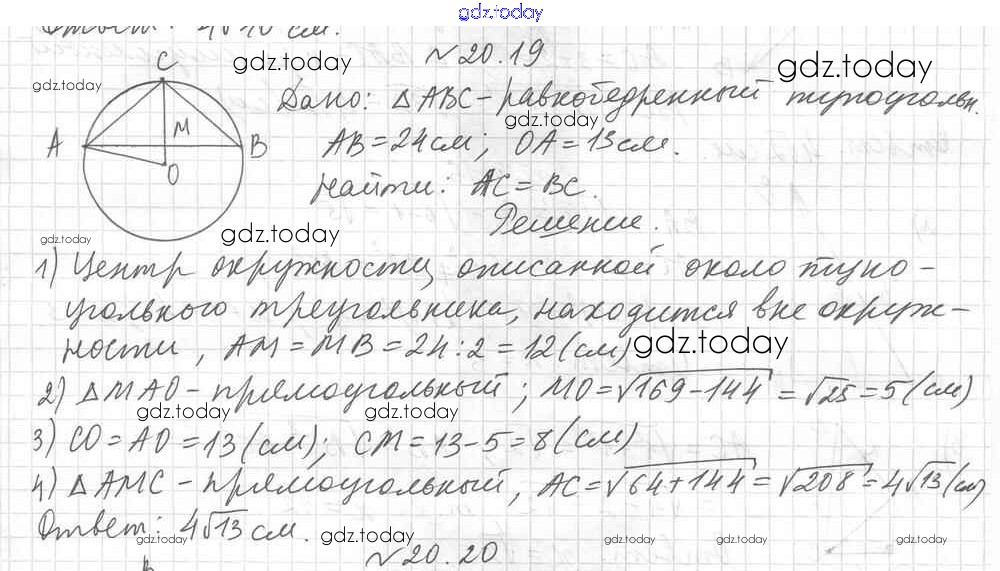 gdz.today
Ответ: 4√10 см.
№20.19
C
gdz.today
gdz.today
gdz.today
Дано: △ABC - равнобедренный тупоугольн.
gdz.today
A
M
B
O
AB = 24 см; OA = 13 см.
Найти: AC = BC.
Решение.
gdz.today
gdz.today
1) Центр окружности, описанной около тупо-
угольного треугольника, находится вне окруж-
ности, AM = MB = 24 : 2 = 12 (см)
gdz.today
2) △MAO - прямоугольный; MO = √169 - 144 = √25 = 5 (см)
gdz.today
gdz.today
3) CO = AO = 13 (см); CM = 13 - 5 = 8 (см)
4) △AMC - прямоугольный, AC = √64 + 144 = √208 = 4√13 (см)
Ответ: 4√13 см.
gdz.today
gdz.today
gdz.today
gdz.today
gdz.today
№20.20